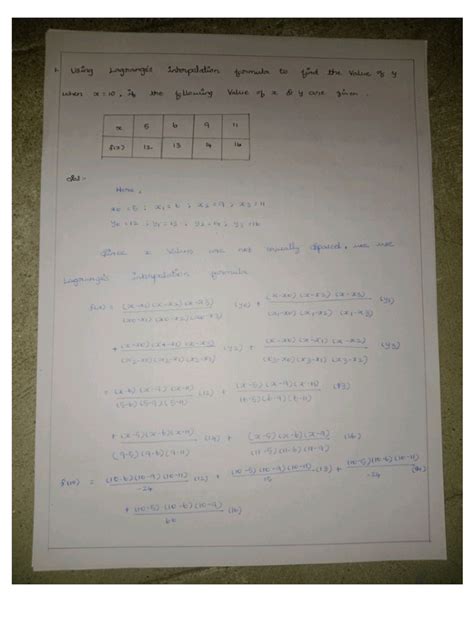 1. Using Lagrange's Interpolation formula to find the value of y
when x=10, if the following value of x & y are given.
x 5 6 9 11
f(x) 12 13 14 16
Sol:-
Here,
x0 = 5 ; x1 = 6 ; x2 = 9 ; x3 = 11
y0 = 12 ; y1 = 13 ; y2 = 14 ; y3 = 16
Since x values are not equally spaced, we use
Lagrange's interpolation formula
f(x) = (x-x1)(x-x2)(x-x3) / (x0-x1)(x0-x2)(x0-x3) (y0) + (x-x0)(x-x2)(x-x3) / (x1-x0)(x1-x2)(x1-x3) (y1)
+ (x-x0)(x-x1)(x-x3) / (x2-x0)(x2-x1)(x2-x3) (y2) + (x-x0)(x-x1)(x-x2) / (x3-x0)(x3-x1)(x3-x2) (y3)
= (x-6)(x-9)(x-11) / (5-6)(5-9)(5-11) (12) + (x-5)(x-9)(x-11) / (6-5)(6-9)(6-11) (13)
+ (x-5)(x-6)(x-11) / (9-5)(9-6)(9-11) (14) + (x-5)(x-6)(x-9) / (11-5)(11-6)(11-9) (16)
f(10) = (10-6)(10-9)(10-11) / -24 (12) + (10-5)(10-9)(10-11) / 15 (13) + (10-5)(10-6)(10-11) / -24 (14)
+ (10-5)(10-6)(10-9) / 60 (16)